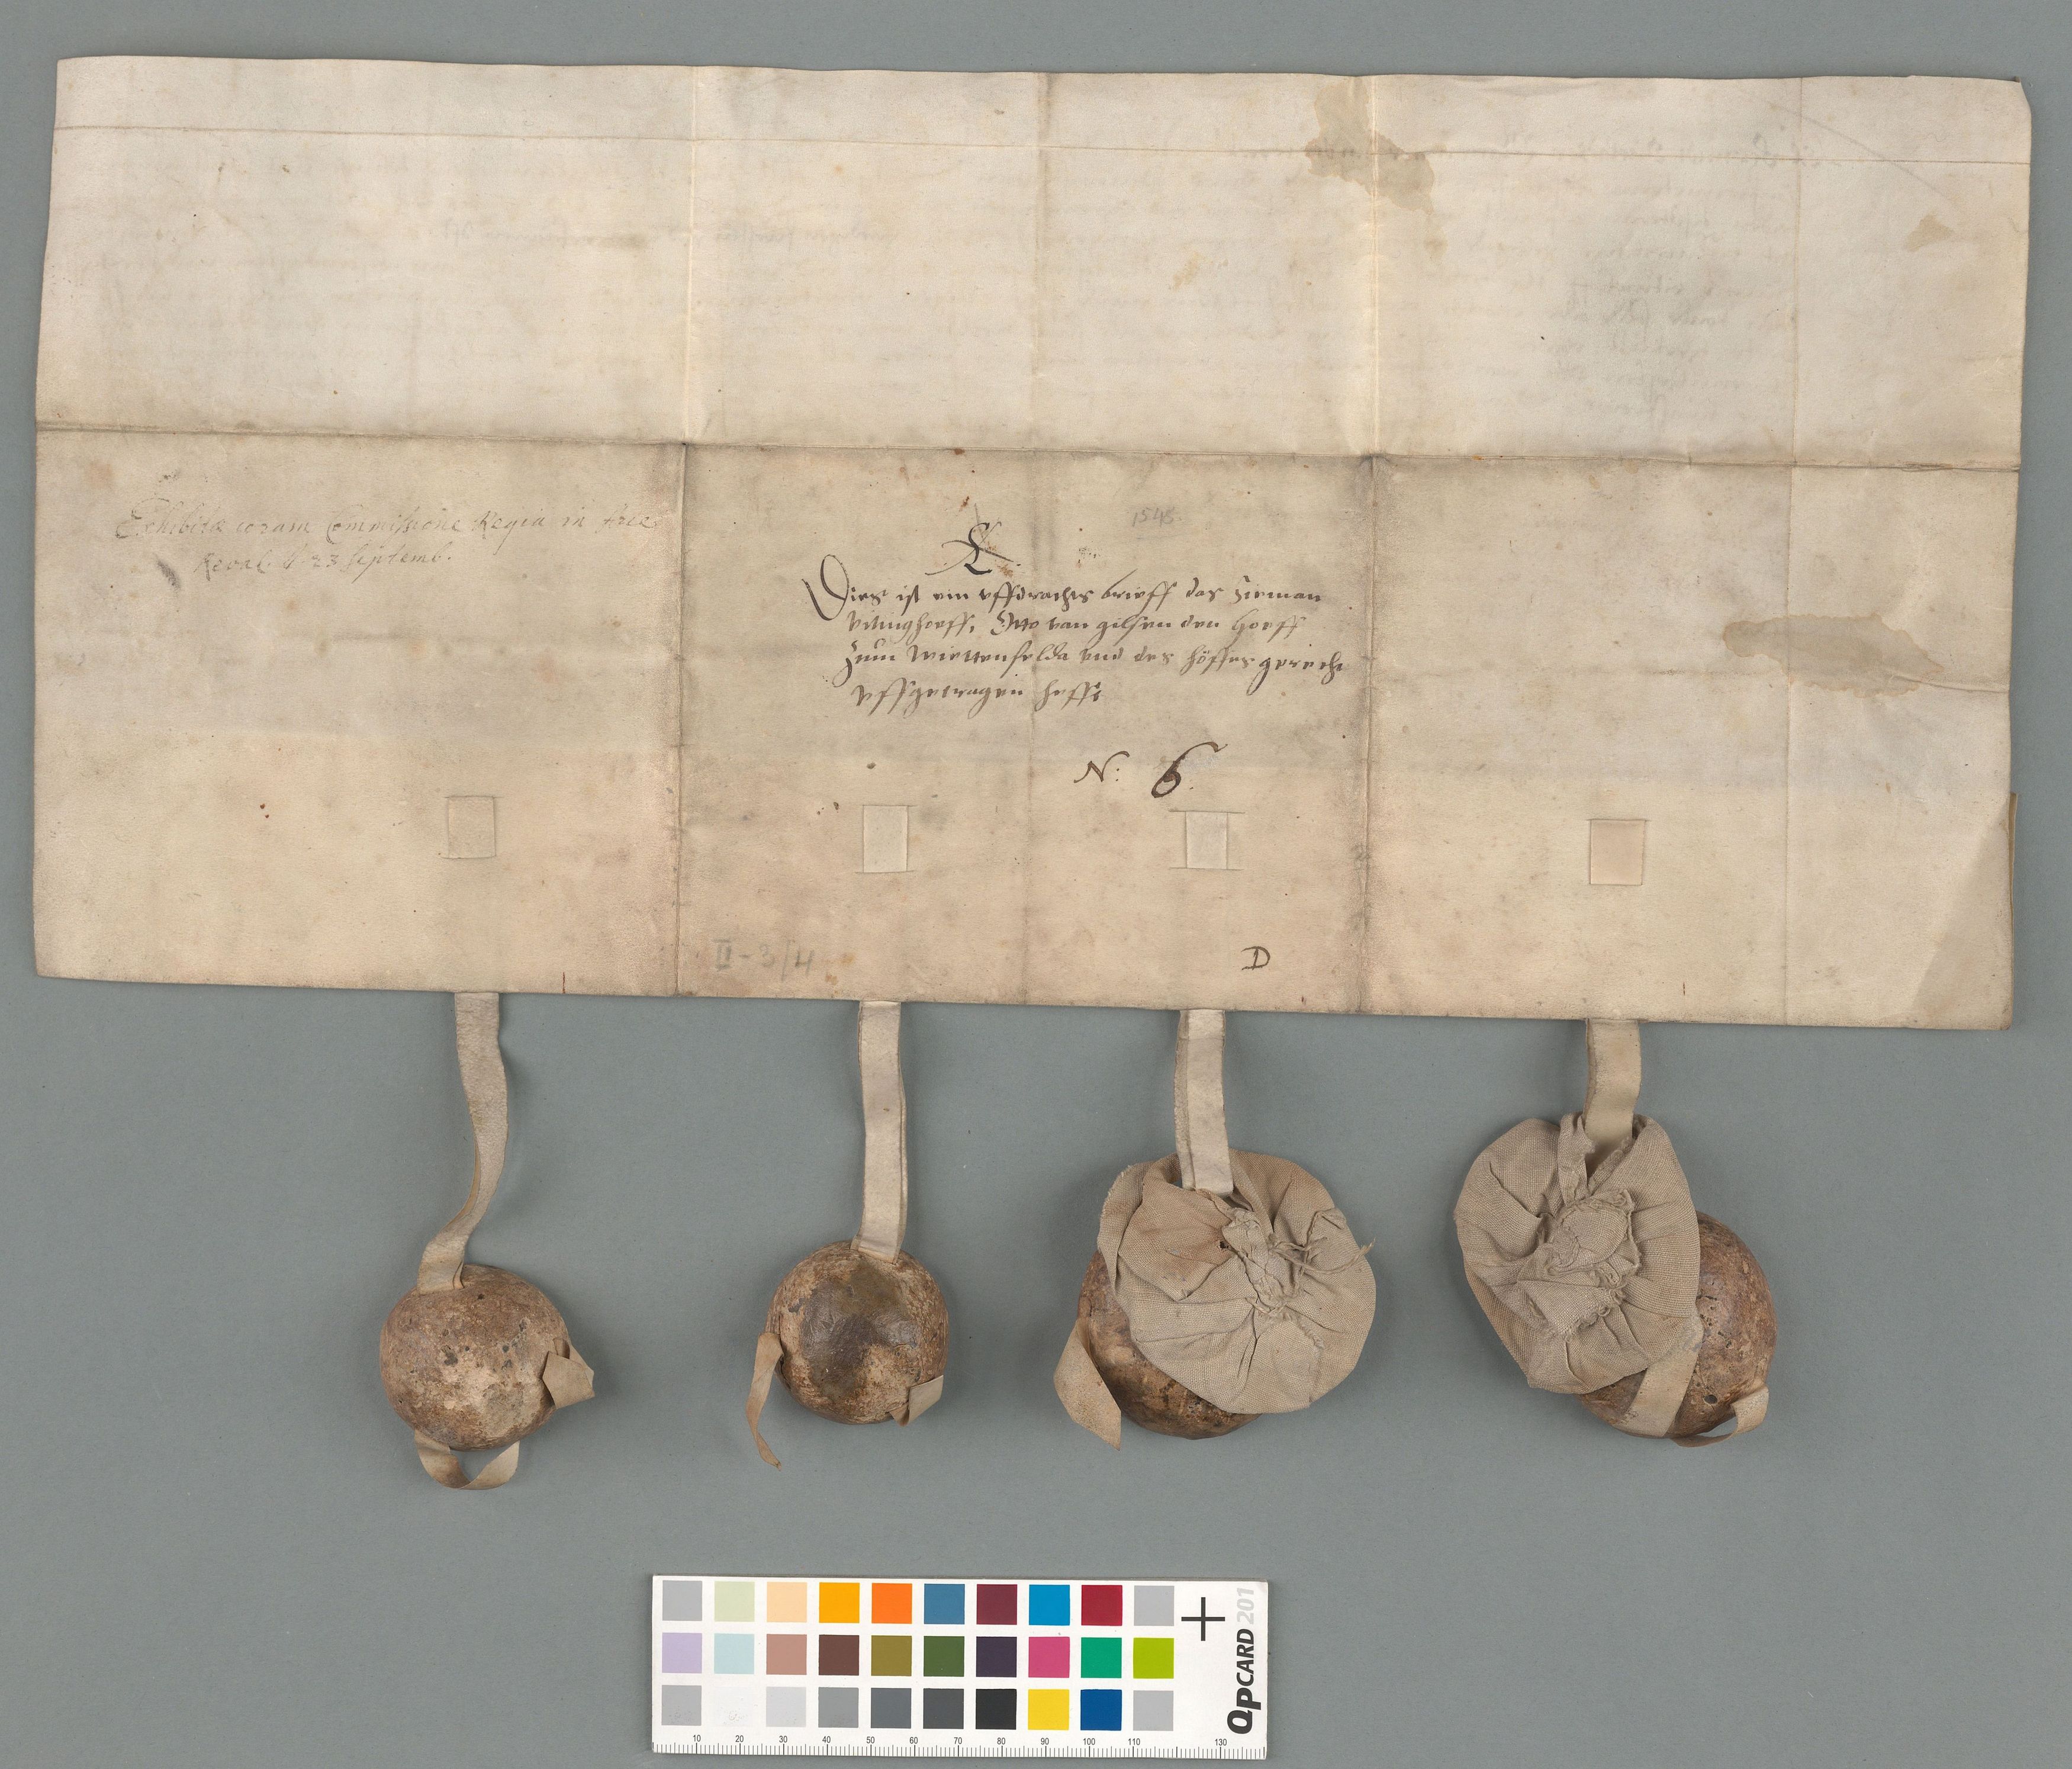 Exhibitæ coram Commissione Regia in Arce
Reval d 23 Septemb.
1545.
Dies ist ein vffdrachts brieff das Zieman
Vitinghoeff, Otto van gilsen den hoeff
Zum Wiettenfelda vnd des höffes gerecht
vffgetragen hefft
N: 6.
II-3/4
D
QPCARD 201
10 20 30 40 50 60 70 80 90 100 110 130